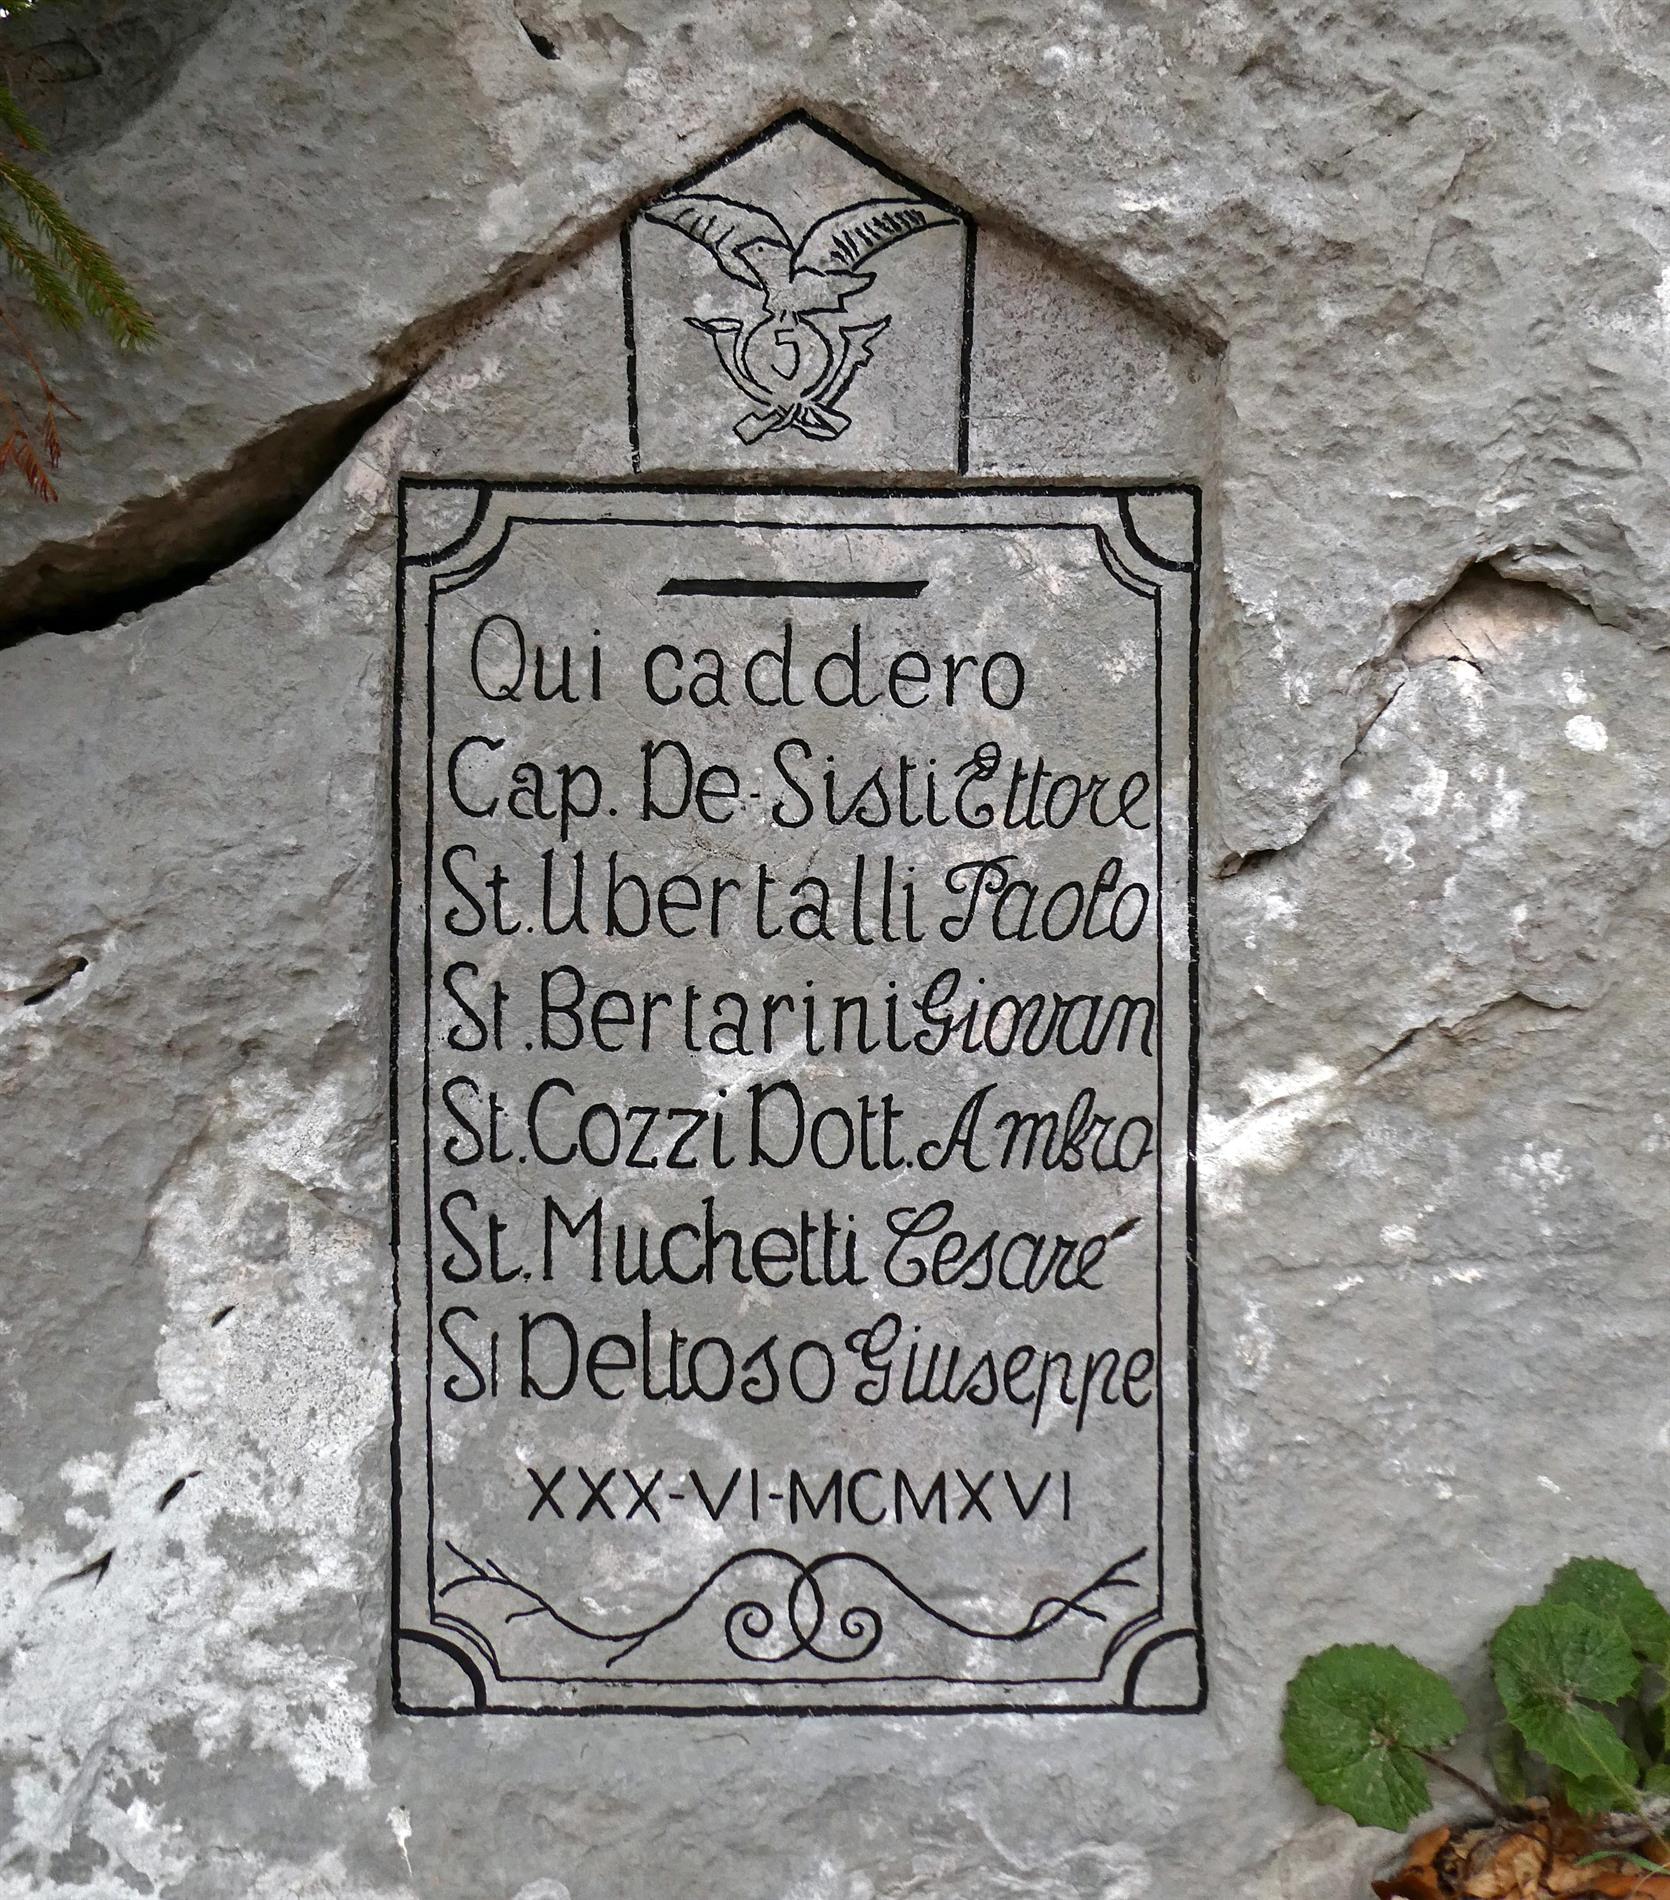 5
Qui caddero
Cap. De-Sisti Ettore
St. Ubertalli Paolo
St. Bertarini Giovan
St. Cozzi Dott. Ambro
St. Muchetti Cesaré
St Deltoso Giuseppe
XXX-VI-MCMXVI